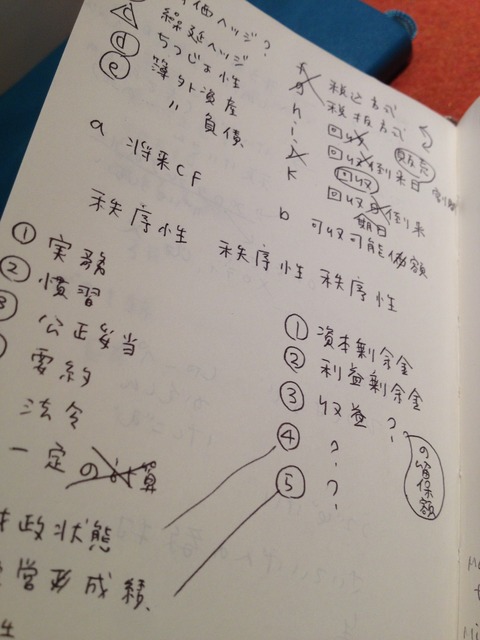 価ヘッジ?
繰延ヘッジ
d ちつじょ性
e 簿外資産
〃 負債
a 将来CF
f 税込方式
g 税抜方式
h 回収
i 回収到来日
貸倒
回収
k 回収 到来
期日
b 回収可能価額
秩序性 秩序性 秩序性
① 実務
② 慣習
③ 公正妥当
要約
法令
一定の計算
財政状態
経営成績
① 資本剰余金
② 利益剰余金
③ 収益?
の留保額
④ ?
⑤ ?